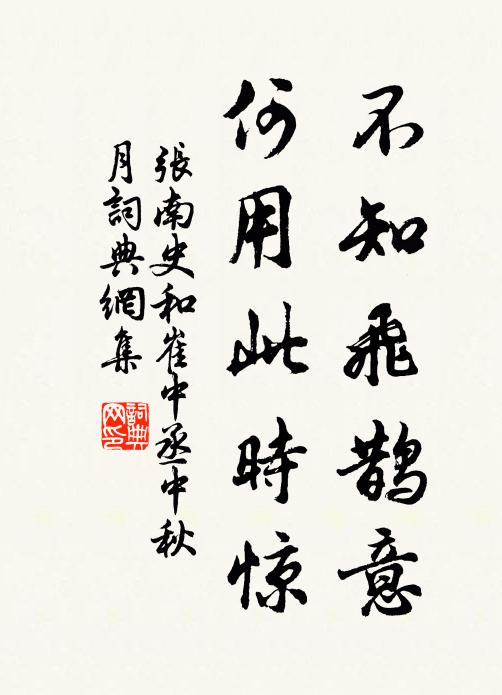 不知飛鹊意
何用此時惊
張南史和崔中丞中秋
月詞典網集
詞典网印